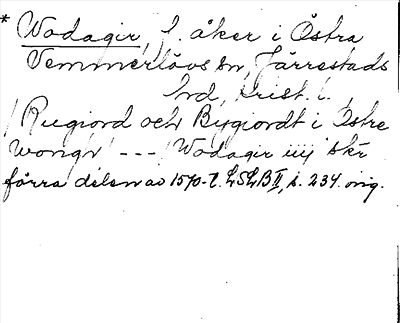 * Wodagir, f. åker i Östra
Vemmerlövs sn, Järrestads
hd, Krist. l.
/Rugiord och Bygiordt i Østre
wongn --- / Wodagir iiij skr
förra delen av 1570-t. LSLB II, s. 234. orig.